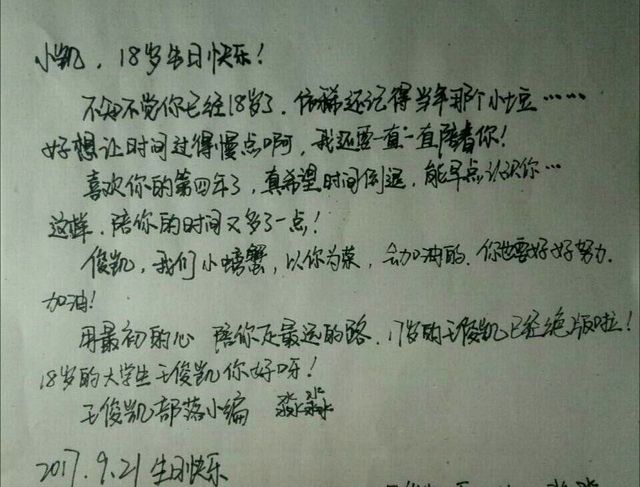 小凯，18岁生日快乐！
不知不觉你已经18岁了，依稀还记得当年那个小土豆……
好想让时间过得慢点啊，我还要一直一直陪着你！
喜欢你的第四年了，真希望时间倒退，能早点认识你…
这样，陪你的时间又多了一点！
俊凯，我们小螃蟹，以你为荣，会加油的，你也要好好努力，
加油！
用最初的心 陪你走最远的路，17岁的王俊凯已经绝版啦！
18岁的大学生王俊凯你好呀！
王俊凯部落小编
2017.9.21 生日快乐